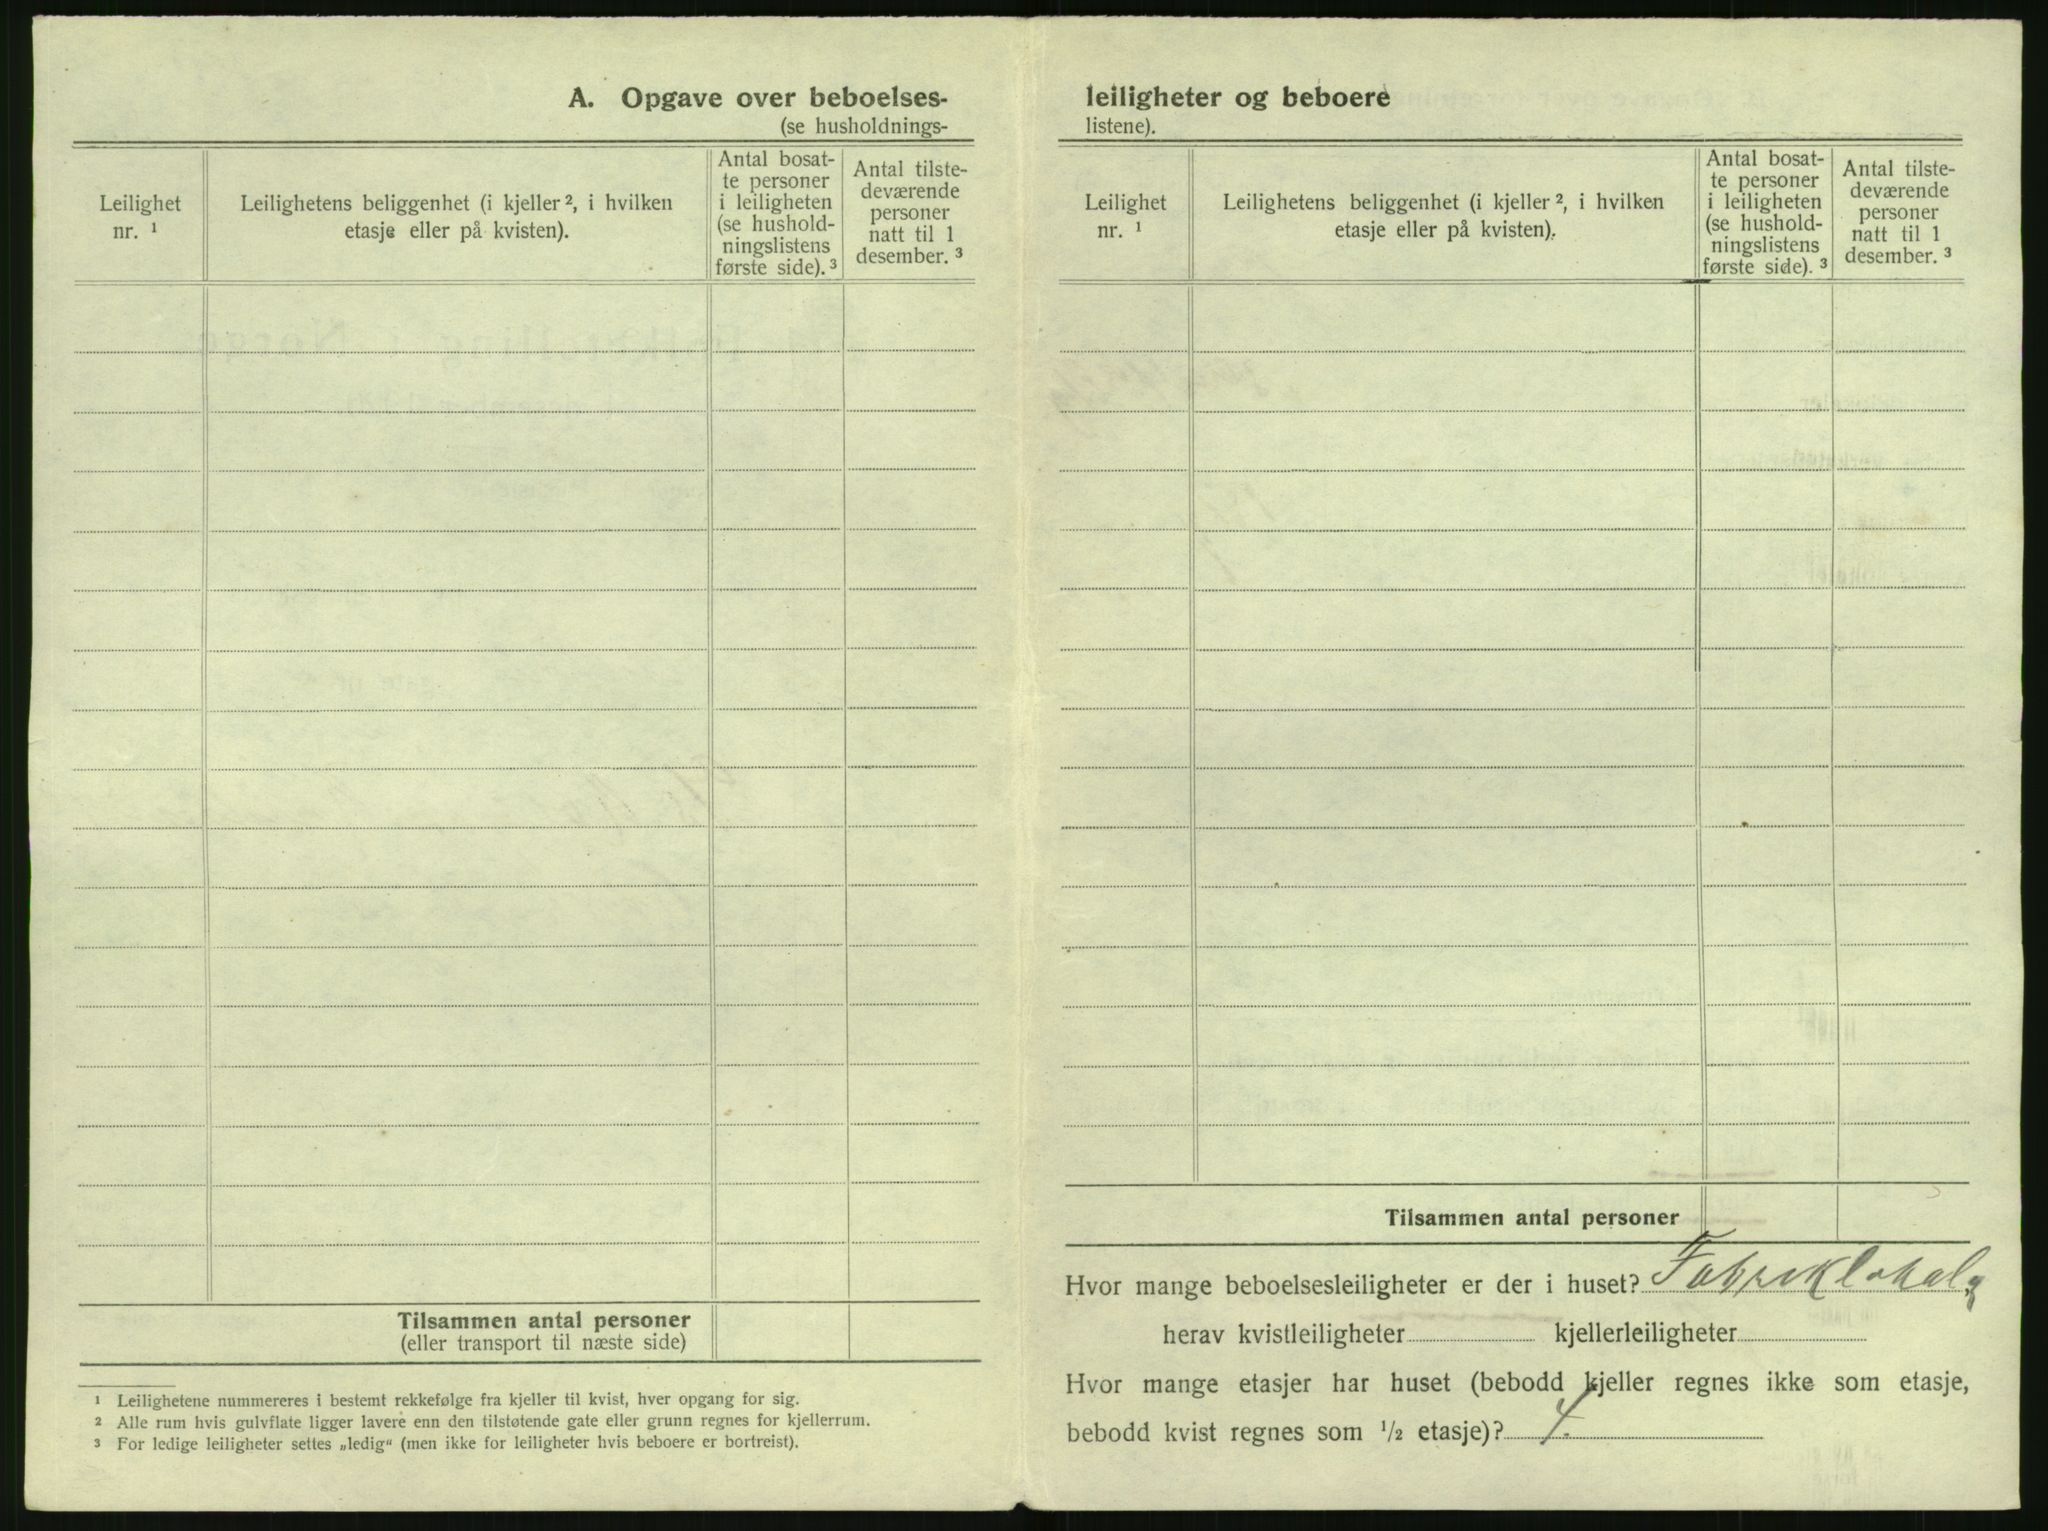 A. Opgave over beboelses-
(se husholdnings-
Leilighet nr. ¹
Leilighetens beliggenhet (i kjeller ², i hvilken etasje eller på kvisten).
Antal bosat-
te personer
i leiligheten
(se hushold-
ningslistens
første side). ³
Antal tilste-
deværende
personer
natt til 1
desember. ³
Tilsammen antal personer
(eller transport til næste side)
¹ Leilighetene nummereres i bestemt rekkefølge fra kjeller til kvist, hver opgang for sig.
² Alle rum hvis gulvflate ligger lavere enn den tilstøtende gate eller grunn regnes for kjellerrum.
³ For ledige leiligheter settes „ledig“ (men ikke for leiligheter hvis beboere er bortreist).
leiligheter og beboere
listene).
Leilighet nr. ¹
Leilighetens beliggenhet (i kjeller ², i hvilken etasje eller på kvisten).
Antal bosat-
te personer
i leiligheten
(se hushold-
ningslistens
første side). ³
Antal tilste-
deværende
personer
natt til 1
desember. ³
Tilsammen antal personer
Hvor mange beboelsesleiligheter er der i huset? Fabriklokale
herav kvistleiligheter kjellerleiligheter
Hvor mange etasjer har huset (bebodd kjeller regnes ikke som etasje,
bebodd kvist regnes som ½ etasje)? 4.